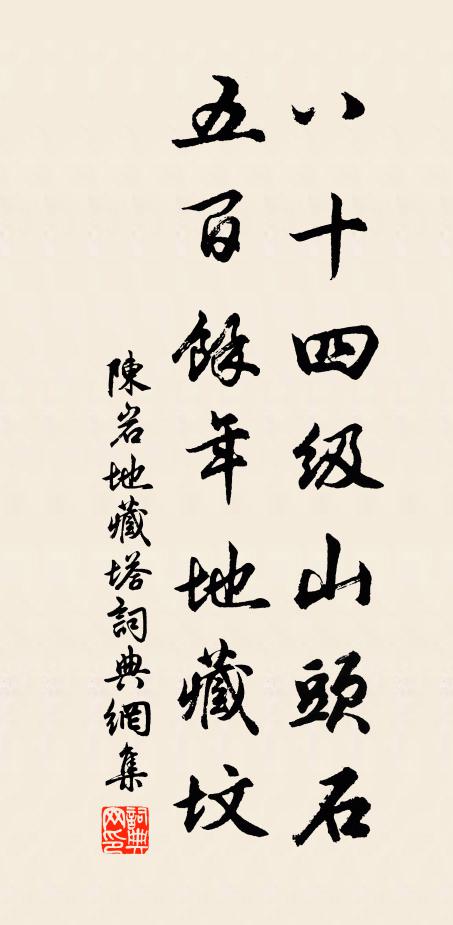 八十四级山頭石
五百餘年地藏坟
陳岩地藏塔詞典網集
詞典网印